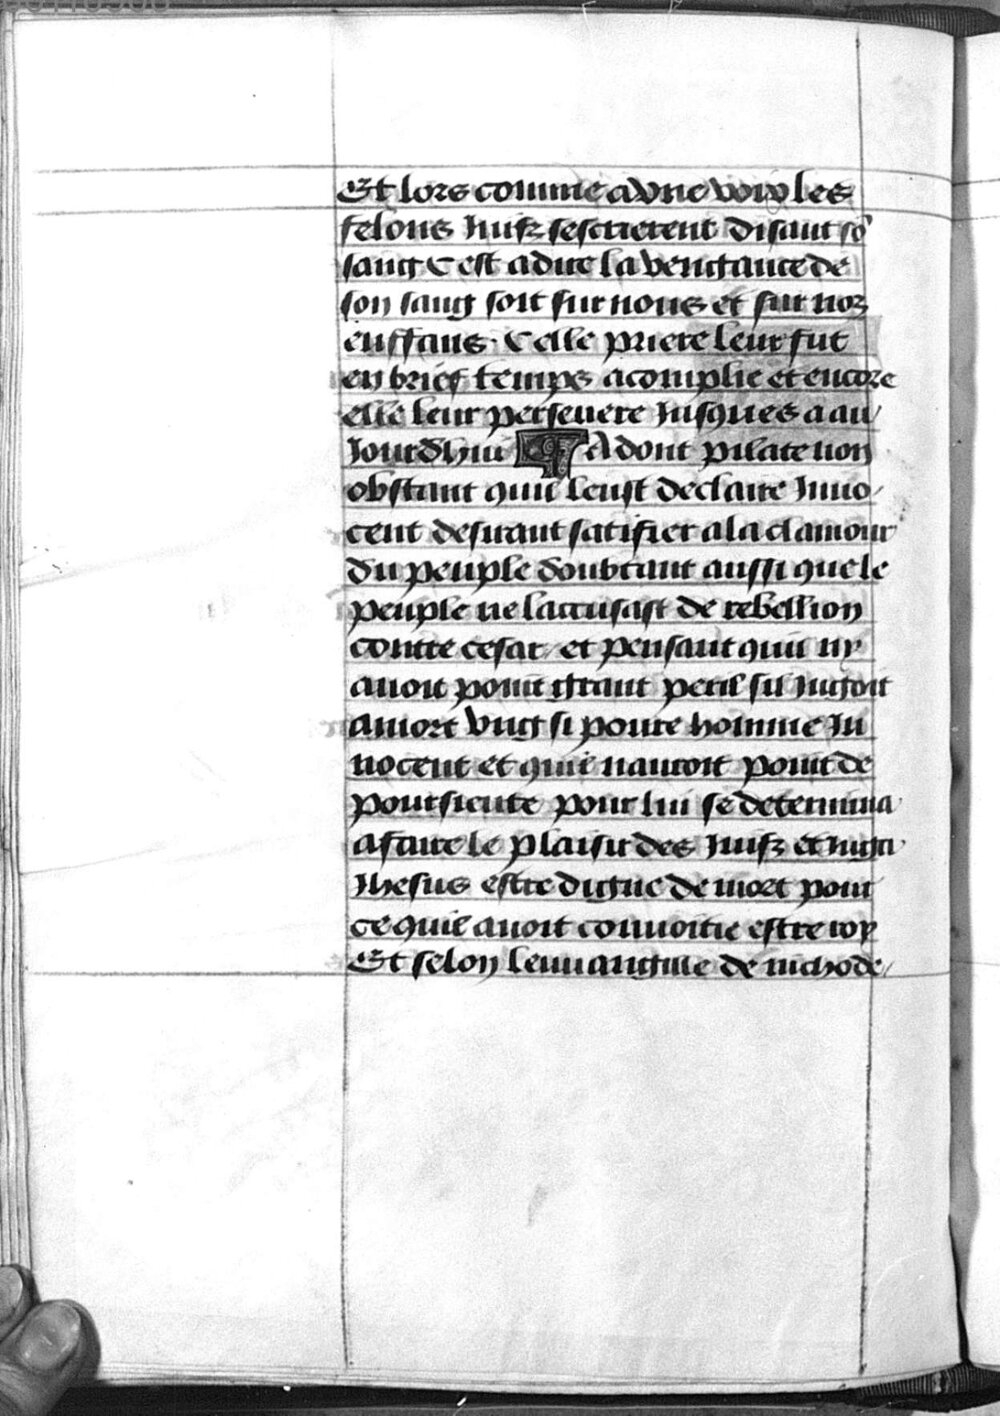 Et lors comme a vne voix les
felons Juifz sescrierent disant so᷑
sang Cest a dire la vengance de
son sang soit sur nous et sur noz
enffans. Celle priere leur fut
en brief temps acomplie et encore
elle leur perseuere Jusques a au
Jourdhui ¶ Adont pilate non
obstant quil leust declaire Inno
cent desirant satifier a la clamour
du peuple doubtant aussi que le
peuple ne laccusast de rebellion
contre cesar et pensant quil ny
auoit point grant peril sil Jugoit
a mort vng si poure homme In
nocent et quil nauroit point de
poursieute pour lui se determina
a faire le plaisir des Juifz et Juga
Jhesus estre digne de mort pour
ce quil auoit conuoitie estre roy
Et selon leuuangille de nichode